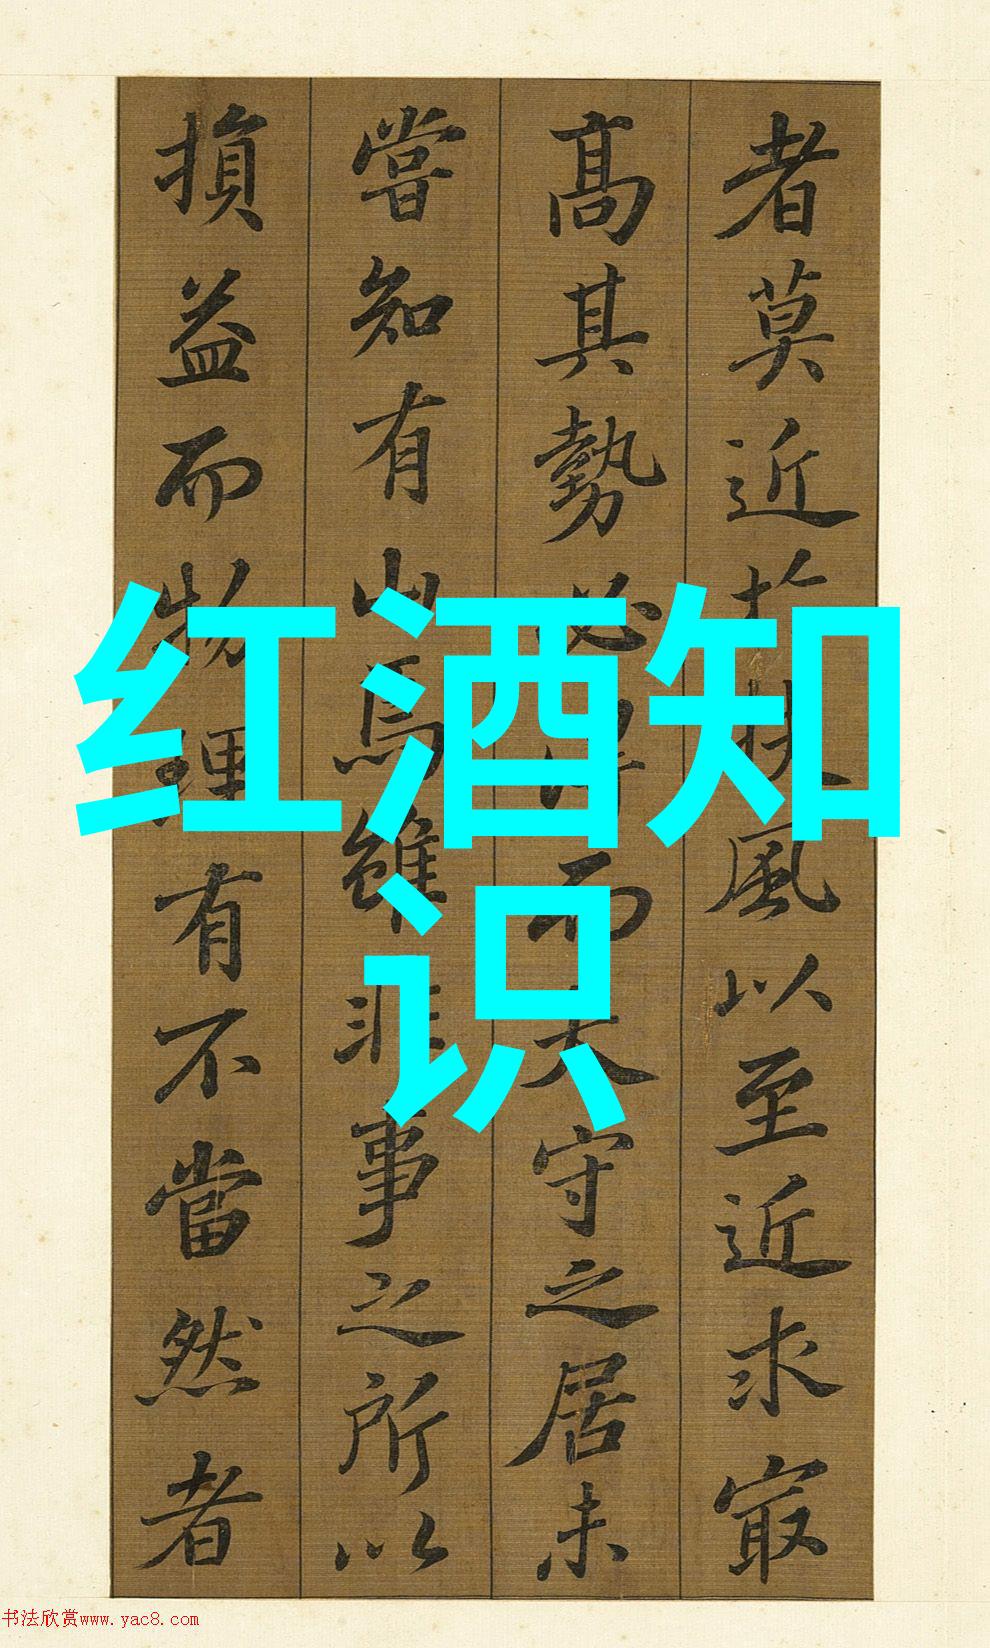 红酒知
识
者莫近扶風以至近求冣
髙其勢必而大守之居未
嘗知有山焉雖非事之所以
損益而物理有不當然者
书法欣赏www.yac8.com